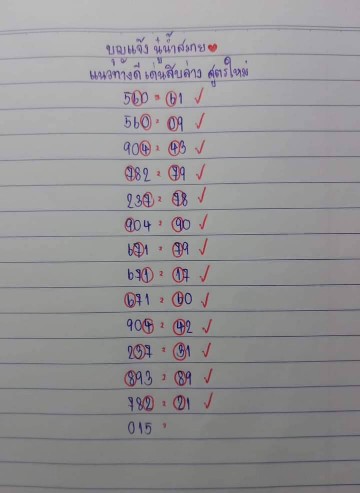 บุญแจ้ง นู๋น้ำสมาย
แนวทางดี เด่นสิบล่าง สูตรใหม่
560 = 61 ✓
560 = 09 ✓
904 = 43 ✓
782 = 79 ✓
237 = 78 ✓
904 = 90 ✓
671 = 79 ✓
671 = 17 ✓
671 = 60 ✓
904 = 42 ✓
237 = 31 ✓
893 = 89 ✓
782 = 21 ✓
015 =